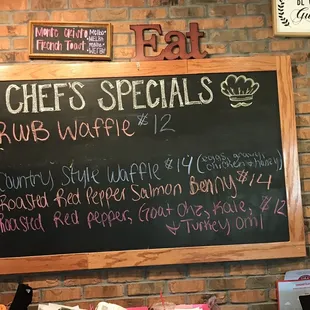 Monte Cristo
French Toast
Eat
CHEF'S SPECIALS
RWB Waffle $12
Country Style Waffle $14 (eggs, gravy,
chicken
Roasted Red Pepper Salmon Benny $14
Roasted Red pepper, Goat Chz, Kale, $12
& Turkey Oml